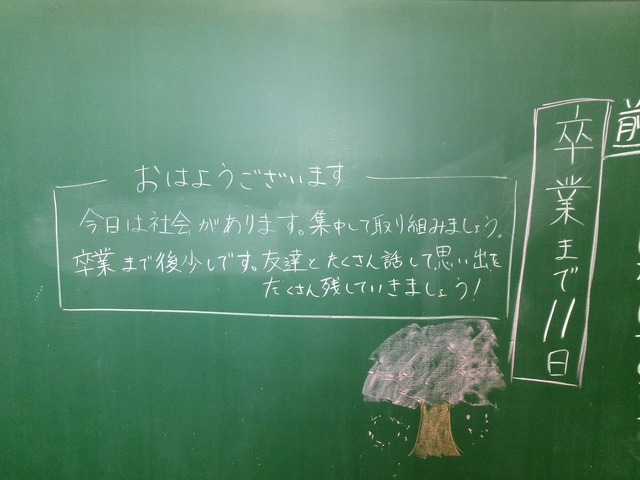 おはようございます
今日は社会があります。集中して取り組みましょう。
卒業まで後少しです。友達とたくさん話して思い出を
たくさん残していきましょう!
卒業まで11日
前